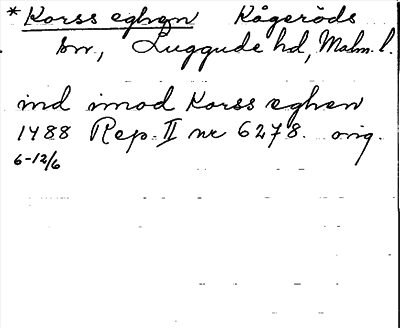 * Korss eghgn Kågeröds
sn., Luggude hd, Malm. l.
ind imod Korss eghen
1488 Rep. II nr 6278. orig.
6-12/6